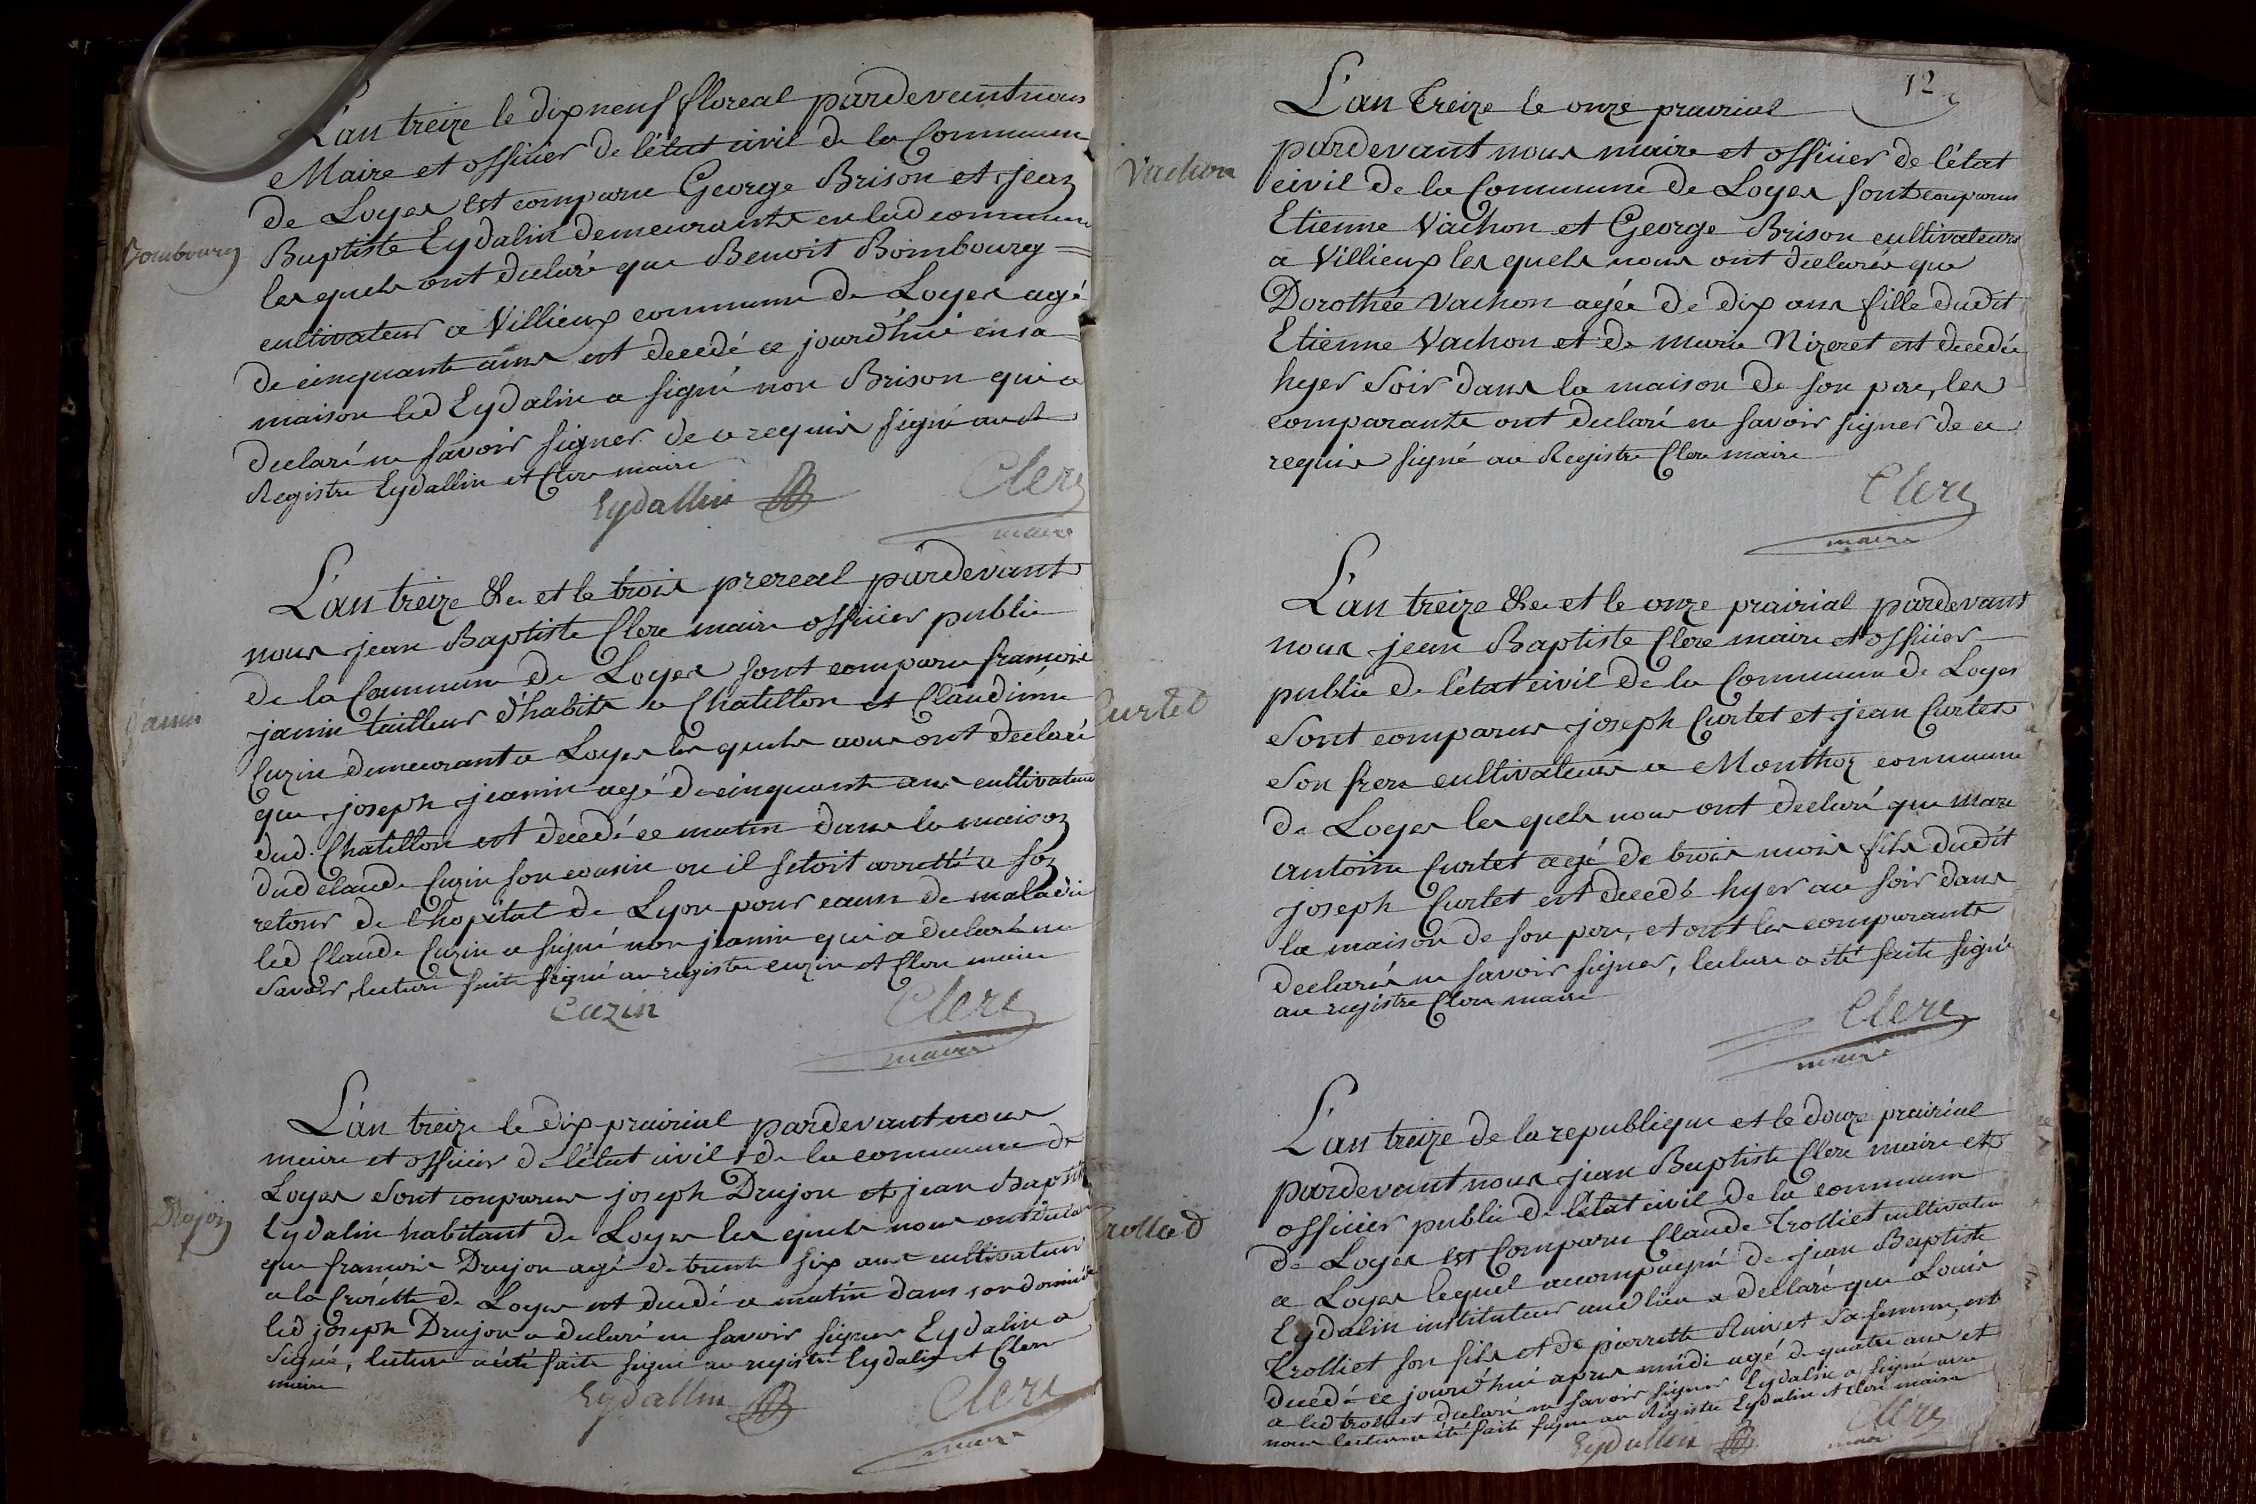 L'an treize le dixneuf floreal pardevant nous
Maire et officier de l'état civil de la Commune
de Loyes est comparu George Brison et jean
Bombourg
Baptiste Eydalin demeurants en lad commune
lesquels ont declaré que Benoit Bombourg
cultivateur a Villieux commune de Loyes agé
de cinquante ans est decedé ce jourd'hui en sa
maison led Eydalin a signé non Brison qui a
declaré ne savoir signer de ce requis signé au dt
Registre Eydallin et Clerc maire
Eydallin Clerc
maire
L'an treize &c et le trois prereal pardevant
nous jean Baptiste Clerc maire officier public
de la Commune de Loyes sont comparu francois
Janin
janin tailleur d'habits a Chatillon et Claudinne
Cuzin demeurant a Loyes les quels nous ont declaré
que joseph jeanin agé de cinquante ans cultivateur
dud. Chatillon est decedé ce matin dans la maison
dud claude Cuzin son cousin ou il setoit arretté a son
retour de l'hopital de Lyon pour cause de maladie
led Claude Cuzin a signé non jeanin qui a declaré ne
savoir, lecture faite signé au registre cuzin et Clerc maire
Cuzin Clerc
maire
L'an treize le dix prairial pardevant nous
maire et officier de l'état civil de la commune de
Loyes sont comparus joseph Drujon et jean Baptiste
Drujon
Eydalin habitant de Loyes les quels nous ont declaré
que francois Drujon agé de trente six ans cultivateur
a la Croisette de Loyes est decedé ce matin dans son domicile
led joseph Drujon a declaré ne savoir signer Eydalin a
signé, lecture a été faite signé au registre Eydalin et Clerc
maire
Eydallin Clerc
maire
12
L'an treize le onze prairial
pardevant nous maire et officier de l'état
Vachon
civil de la Commune de Loyes sont comparus
Etienne Vachon et George Brison cultivateurs
a Villieux les quels nous ont declarés que
Dorothée Vachon agée de dix ans fille dudit
Etienne Vachon et de Marie Nizeret est decedée
hyer soir dans la maison de son pere, les
comparants ont declaré ne savoir signer de ce
requis signé au Registre Clerc maire
Clerc
maire
L'an treize &c et le onze prairial pardevant
nous jean Baptiste Clerc maire et officier
public de l'état civil de la Commune de Loyes
Curtet
sont comparus joseph Curtet et jean Curtet
son frere cultivateurs a Monthoz commune
de Loyes les quels nous ont declaré que Marc
antoine Curtet agé de trois mois fils dudit
joseph Curtet est decedé hyer au soir dans
la maison de son pere, et ont les comparants
declarés ne savoir signer, lecture a été faite signé
au registre Clerc maire
Clerc
maire
L'an treize de la republique et le douze prairial
pardevant nous jean Baptiste Clerc maire et
officier public de l'état civil de la commune
Trolliet
de Loyes est comparu Claude Trolliet cultivateur
a Loyes lequel acompagné de jean Baptiste
Eydalin instituteur aud lieu a declaré que Louis
Trolliet son fils et de pierrette Ruivet sa femme, est
decedé ce jourd'hui apres midi agé de quatre ans et
a led trolliet declaré ne savoir signer Eydalin a signé avec
nous lecture a été faite signé au Registre Eydalin et Clerc maire
Eydallin Clerc
maire